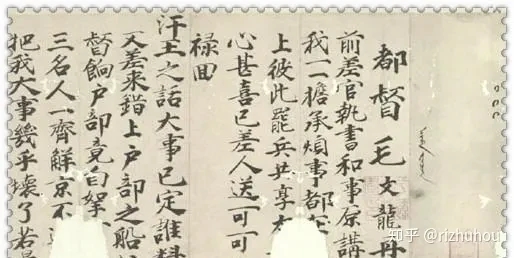 都督毛文龍再
前差官執書和事原講
我一擔承煩事都在
上彼此罷兵共享
心甚喜已差人送可可
祿回
汗王之話大事已定誰料
又差來錯上户部之船
督餉户部竟自拏
三名人一齊解京不
把我大事幾乎壞了若
知乎 @rizhuhouu